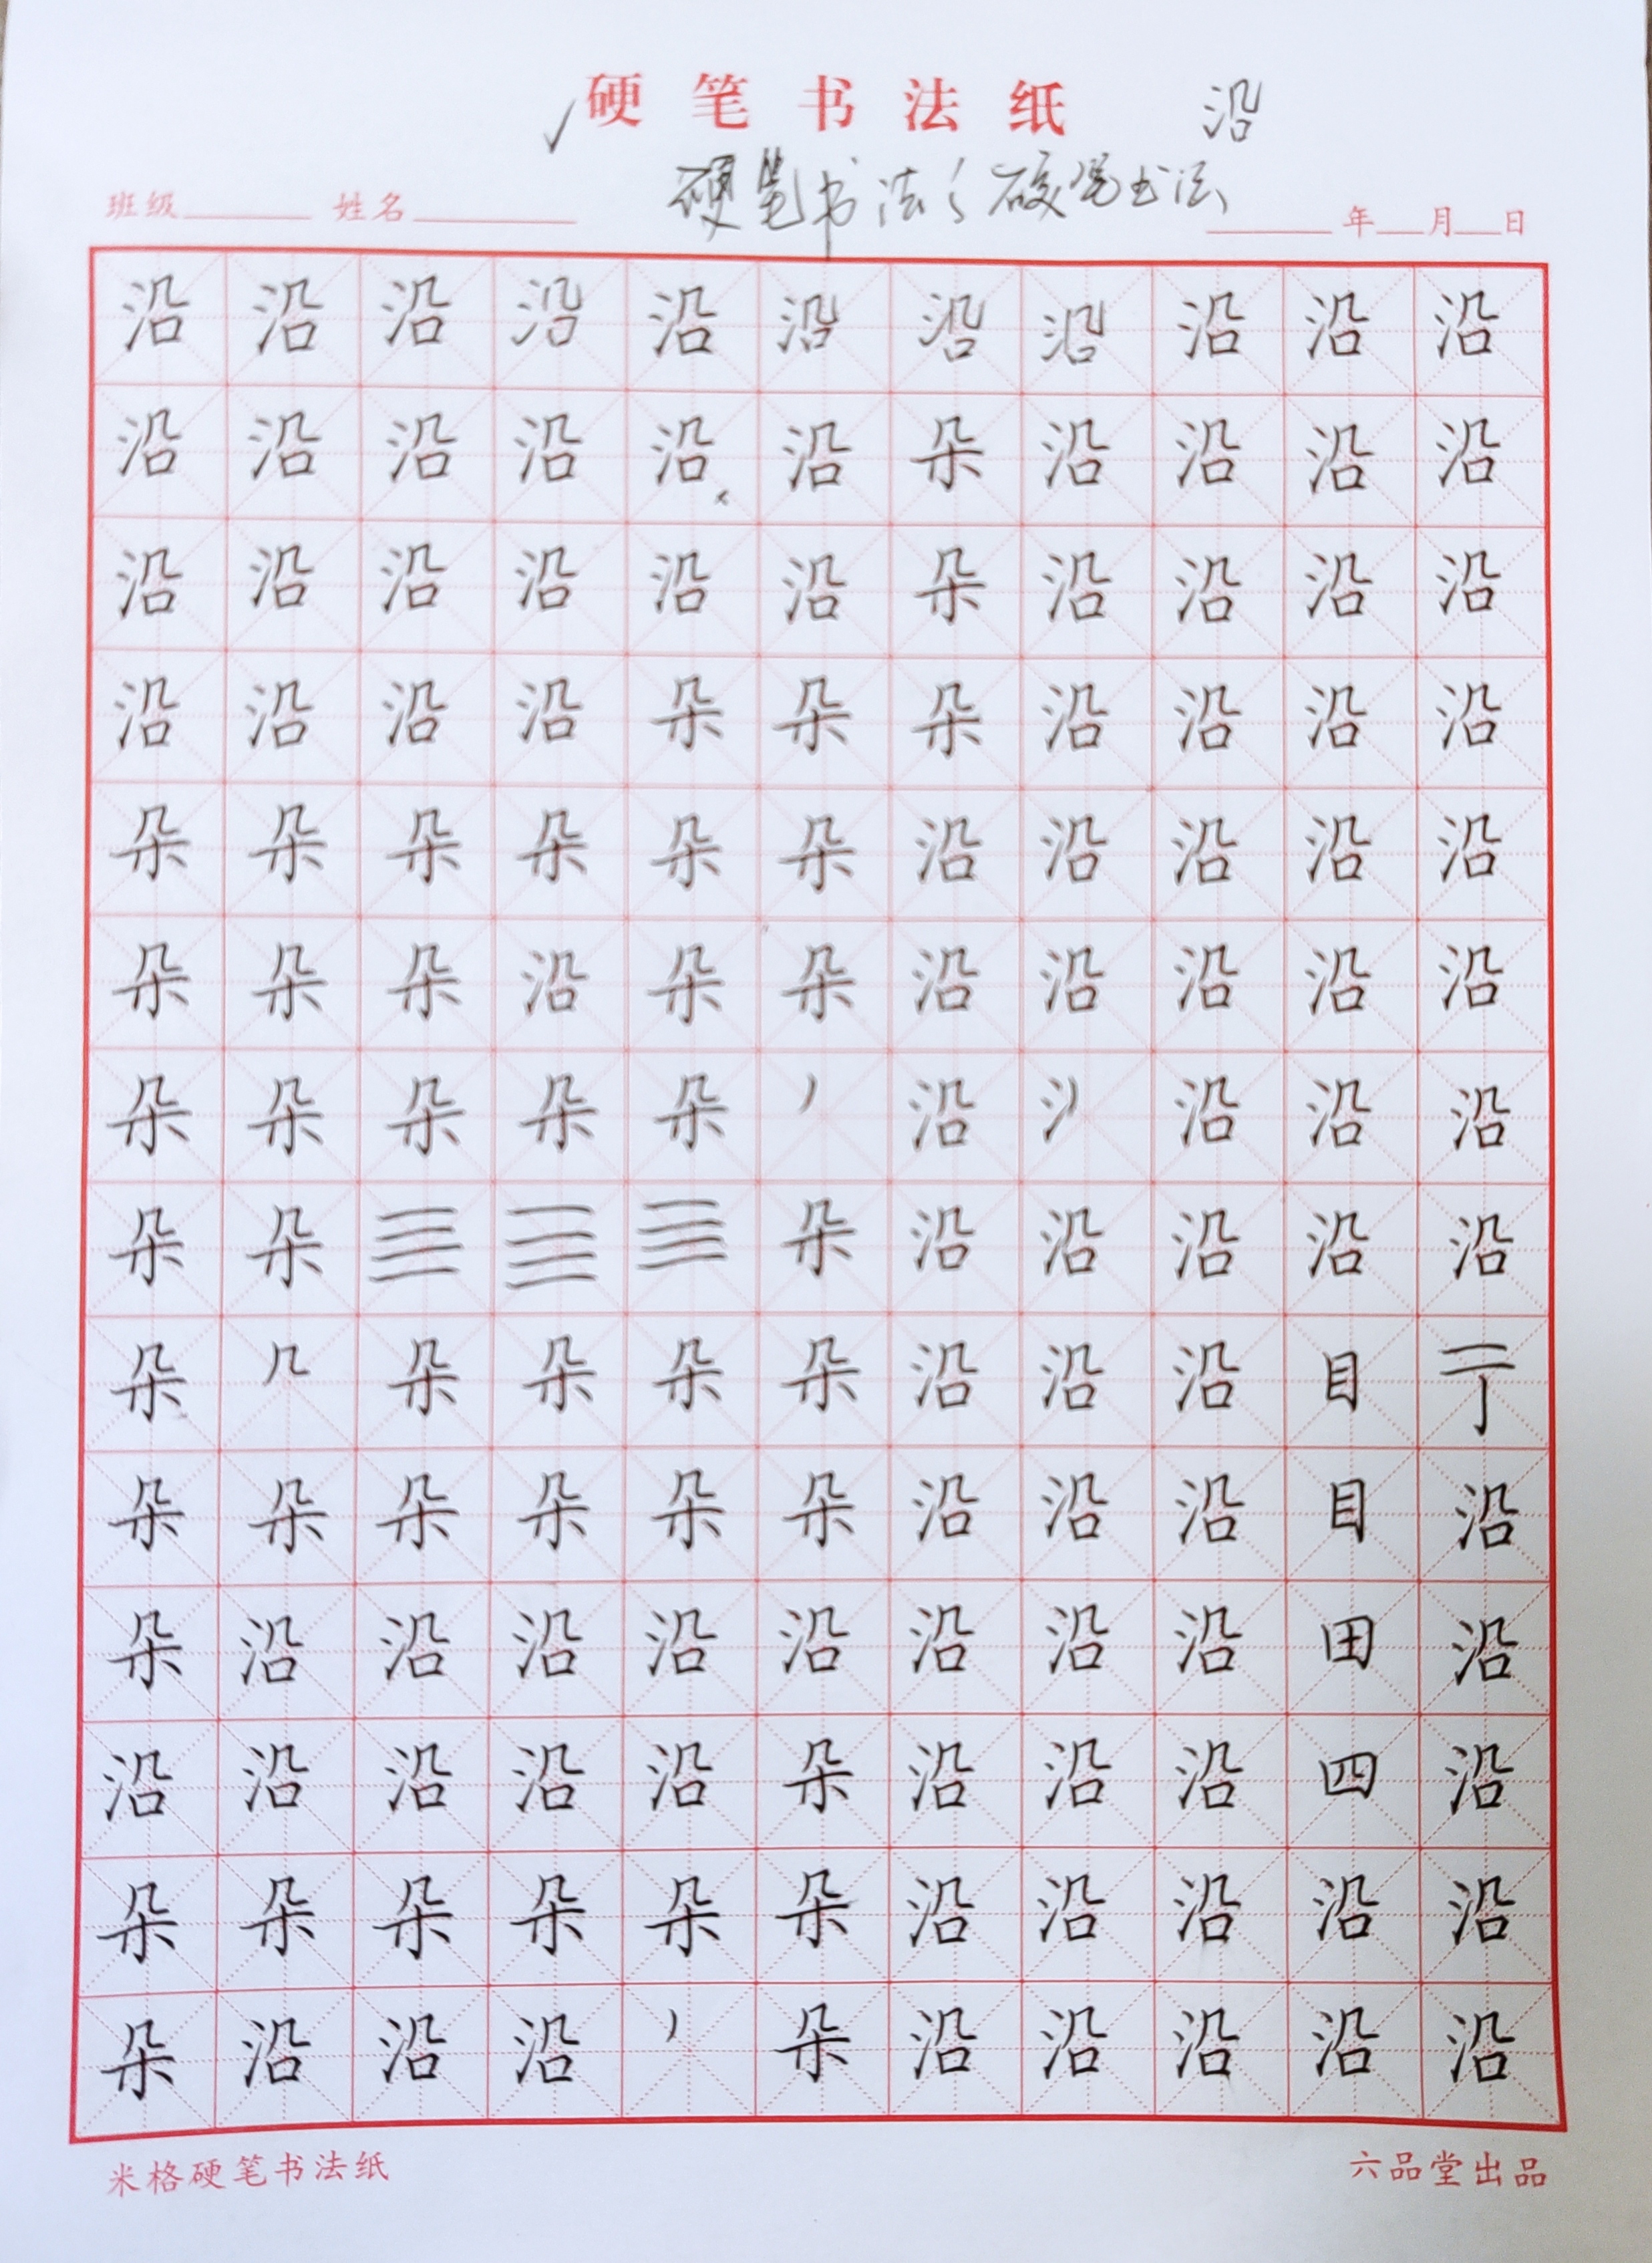 硬笔书法纸 沿
硬笔书法 硬笔书法
班级 姓名 年 月 日
沿沿沿沿沿沿沿沿沿沿沿
沿沿沿沿沿沿朵沿沿沿沿
沿沿沿沿沿沿朵沿沿沿沿
沿沿沿沿朵朵朵沿沿沿沿
朵朵朵朵朵朵沿沿沿沿沿
朵朵朵沿朵朵沿沿沿沿沿
朵朵朵朵朵丿沿氵沿沿沿
朵朵朵沿沿沿沿沿
朵朵朵朵朵沿沿沿目
朵朵朵朵朵朵沿沿沿目沿
朵沿沿沿沿沿沿沿沿田沿
沿沿沿沿沿朵沿沿沿四沿
朵朵朵朵朵朵沿沿沿沿沿
朵沿沿沿丿朵沿沿沿沿沿
米格硬笔书法纸 六品堂出品